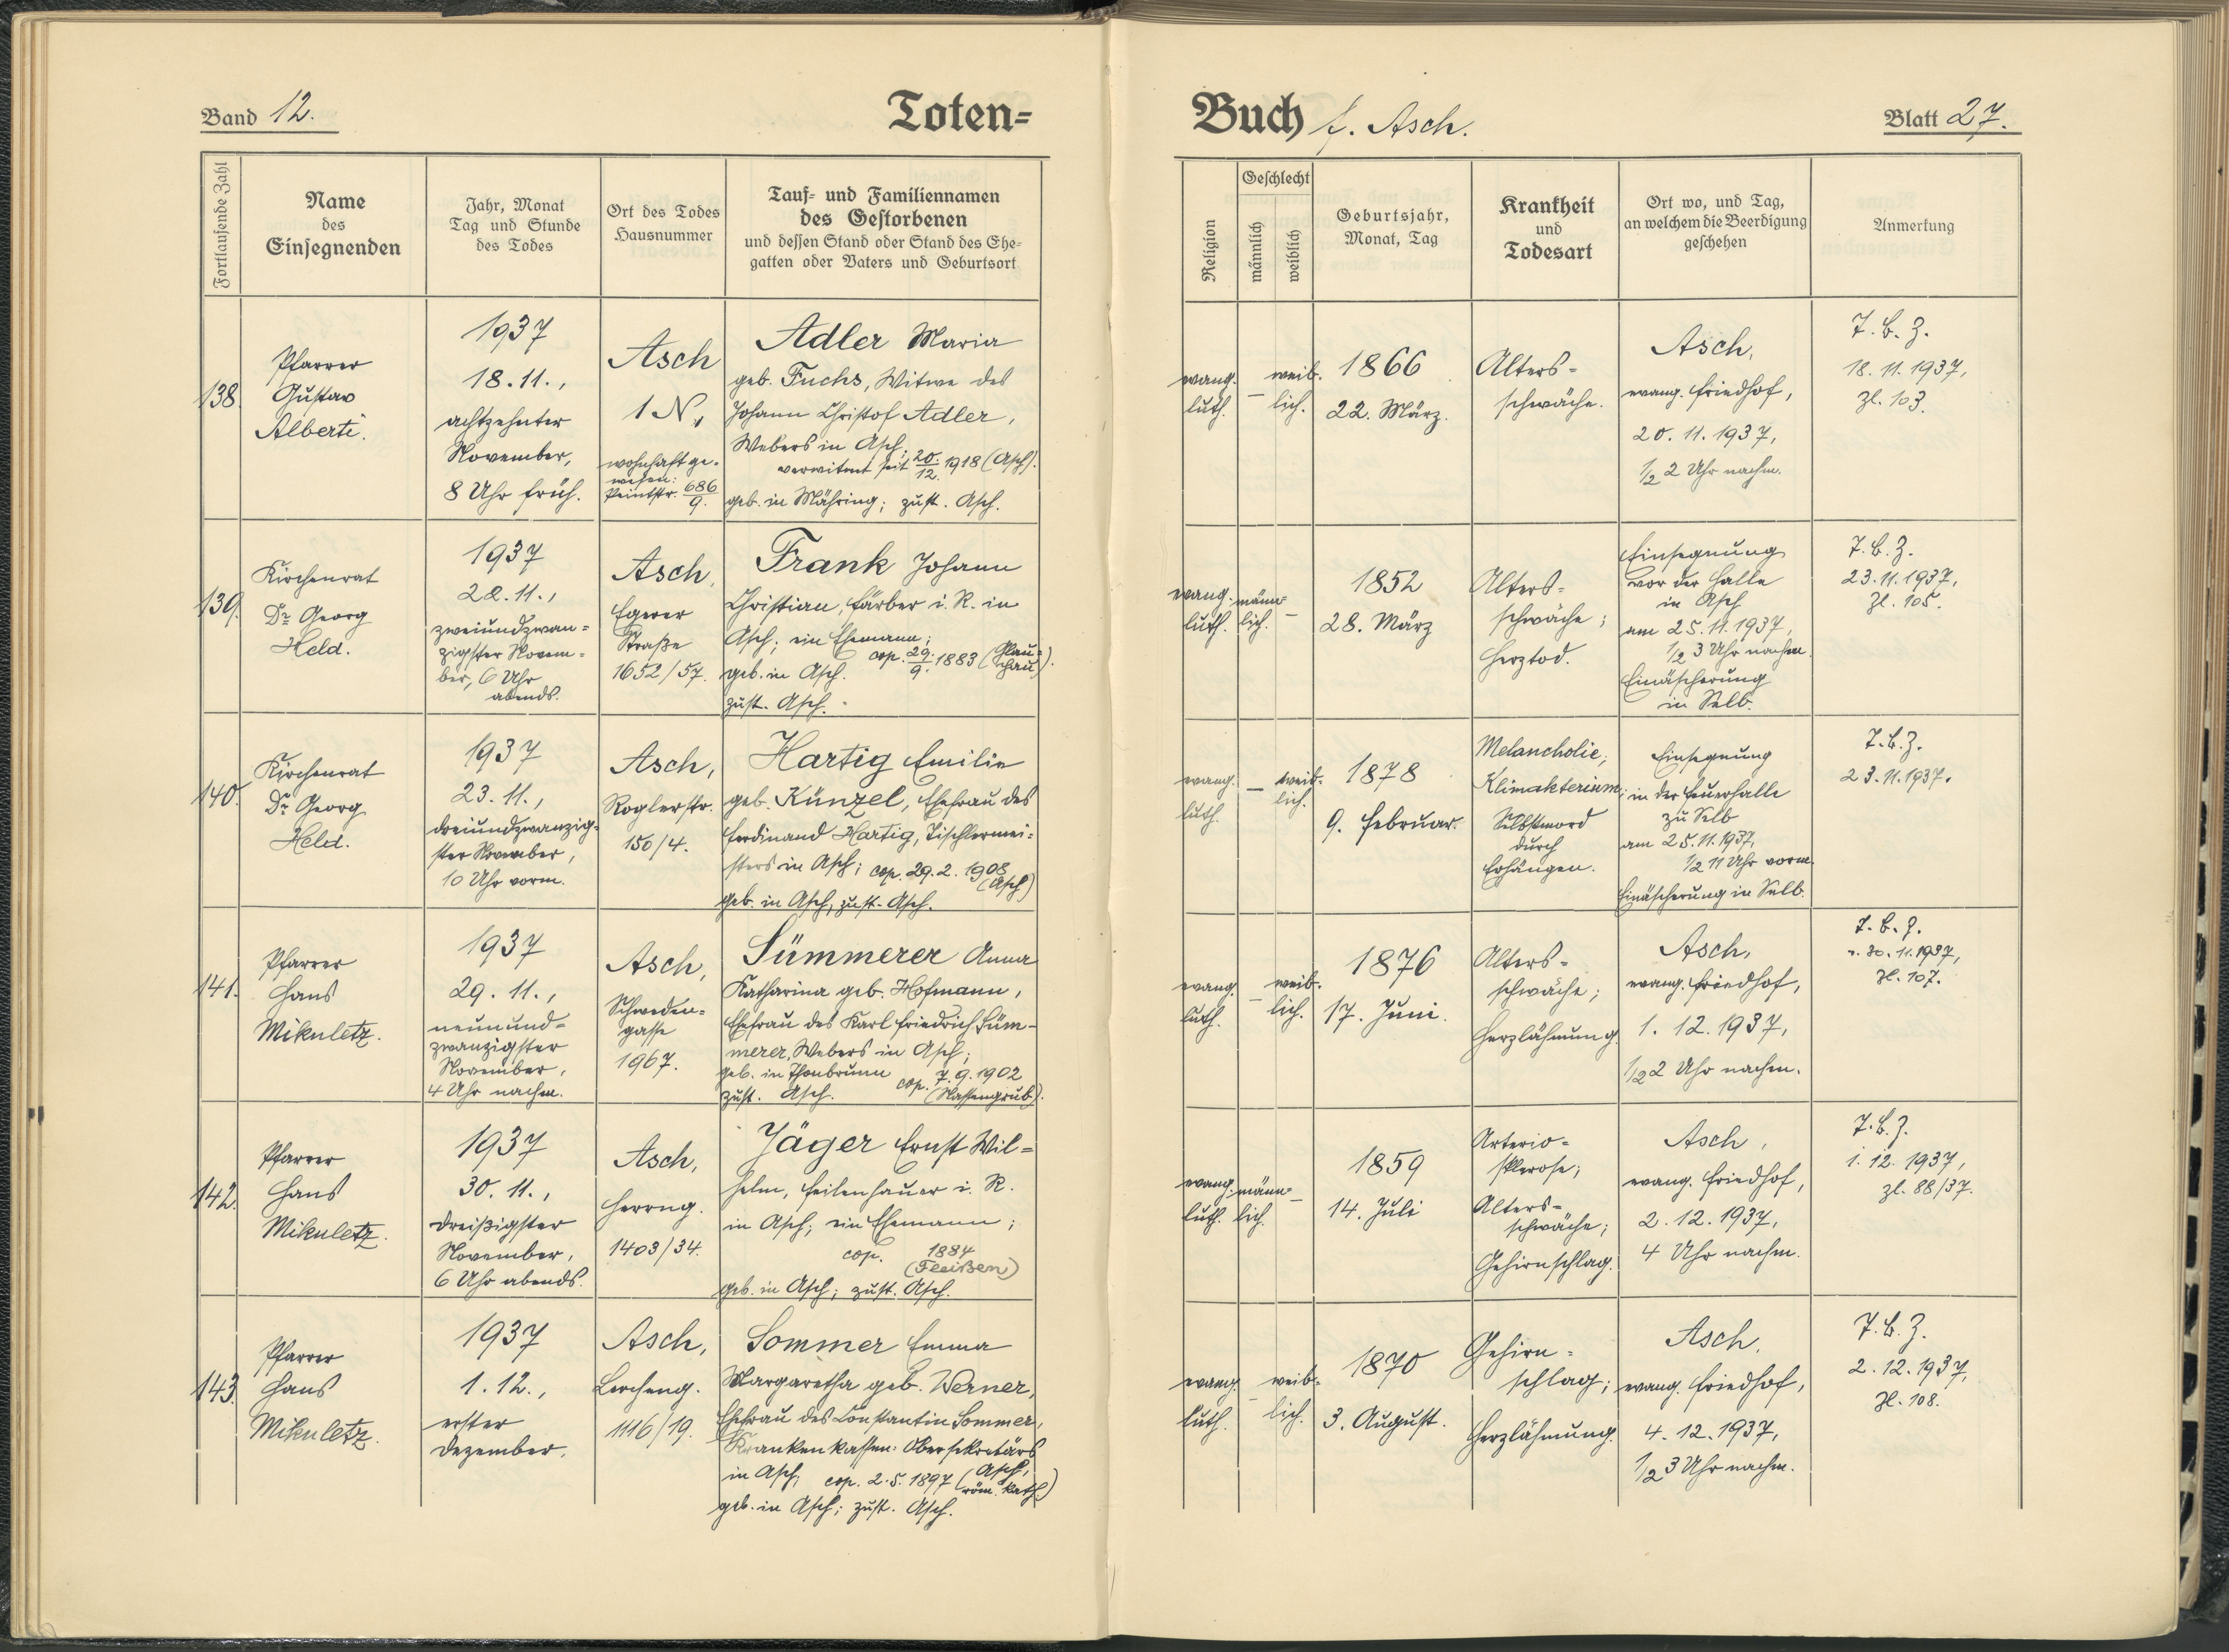 Band 12.
Toten=
Fortlaufende Zahl
Name
des
Einsegnenden
Jahr, Monat
Tag und Stunde
des Todes
Ort des Todes
Hausnummer
Tauf- und Familiennamen
des Gestorbenen
und dessen Stand oder Stand des Ehe-
gatten oder Vaters und Geburtsort
138.
Pfarrer
Gustav
Alberti.
1937
18.11.,
achtzehnter
November,
8 Uhr früh.
Asch
1 N.,
wohnhaft ge-
wesen:
Peintstr. 686/9.
Adler Maria
geb. Fuchs, Witwe des
Johann Christof Adler,
Webers in Asch;
verwitwet seit 20./12. 1918 (Asch).
geb. in Mähring; zust. Asch.
139.
Kirchenrat
Dr. Georg
Held.
1937
22.11.,
zweiundzwan=
zigster Novem=
ber, 6 Uhr
abends.
Asch,
Egerer
Straße
1652/57.
Frank Johann
Christian, Färber i. R. in
Asch; ein Ehemann;
cop. 29./9. 1883 (Glau=
chau).
geb. in Asch.
zust. Asch.
140.
Kirchenrat
Dr. Georg
Held.
1937
23.11.,
dreiundzwanzig=
ster November,
10 Uhr vorm.
Asch,
Roglerstr.
150/4.
Hartig Emilie
geb. Künzel, Ehefrau des
Ferdinand Hartig, Tischlermei=
sters in Asch; cop. 29.2.1908
(Asch)
geb. in Asch, zust. Asch.
141.
Pfarrer
Hans
Mikuletz.
1937
29.11.,
neunund=
zwanzigster
November,
4 Uhr nachm.
Asch,
Schweden=
gasse
1967.
Sümmerer Anna
Katharina geb. Hofmann,
Ehefrau des Karl Friedrich Süm-
merer, Webers in Asch;
geb. in Thonbrunn cop. 7.9.1902
zust. Asch. (Nassengrub).
142.
Pfarrer
Hans
Mikuletz.
1937
30.11.,
dreißigster
November,
6 Uhr abends.
Asch,
Herrng.
1403/34.
Jäger Ernst Wil=
helm, Feilenhauer i. R.
in Asch; ein Ehemann;
cop. 1884
(Fleißen)
geb. in Asch; zust. Asch.
143.
Pfarrer
Hans
Mikuletz.
1937
1.12.,
erster
Dezember.
Asch,
Lercheng.
1116/19.
Sommer Emma
Margaretha geb. Werner,
Ehefrau des Constantin Sommer,
Krankenkassen-Obersekretärs
in Asch, cop. 2.5.1897 (Asch,
röm. kath.)
geb. in Asch; zust. Asch.
Buch f. Asch.
Blatt 27.
Religion
Geschlecht
männlich
weiblich
Geburtsjahr,
Monat, Tag
Krankheit
und
Todesart
Ort wo, und Tag,
an welchem die Beerdigung
geschehen
Anmerkung
evang.
luth.
–
weib.
lich.
1866
22. März.
Alters=
schwäche.
Asch,
evang. Friedhof,
20.11.1937,
1/2 2 Uhr nachm.
T.B.Z.
18.11.1937,
Zl. 103.
evang.
luth.
männ=
lich.
–
1852
28. März
Alters=
schwäche;
Herztod.
Einsegnung
vor der Halle
in Asch
am 25.11.1937,
1/2 3 Uhr nachm.
Einäscherung
in Selb.
T.B.Z.
23.11.1937,
Zl. 105.
evang.
luth.
–
weib=
lich.
1878
9. Februar.
Melancholie;
Klimakterium;
Selbstmord
durch
Erhängen.
Einsegnung
in der Feuerhalle
zu Selb
am 25.11.1937,
1/2 11 Uhr vorm.
Einäscherung in Selb.
T.B.Z.
23.11.1937.
evang.
luth.
–
weib=
lich.
1876
17. Juni.
Alters=
schwäche;
Herzlähmung.
Asch,
evang. Friedhof,
1.12.1937,
1/2 2 Uhr nachm.
T.B.Z.
v. 30.11.1937,
Zl. 107.
evang.
luth.
männ=
lich.
–
1859
14. Juli
Arterio=
sklerose;
Alters=
schwäche;
Gehirnschlag.
Asch,
evang. Friedhof,
2.12.1937,
4 Uhr nachm.
T.B.Z.
1.12.1937,
Zl. 88/37.
evang.
luth.
–
weib=
lich.
1870
3. August.
Gehirn=
schlag;
Herzlähmung.
Asch,
evang. Friedhof,
4.12.1937,
1/2 3 Uhr nachm.
T.B.Z.
2.12.1937,
Zl. 108.